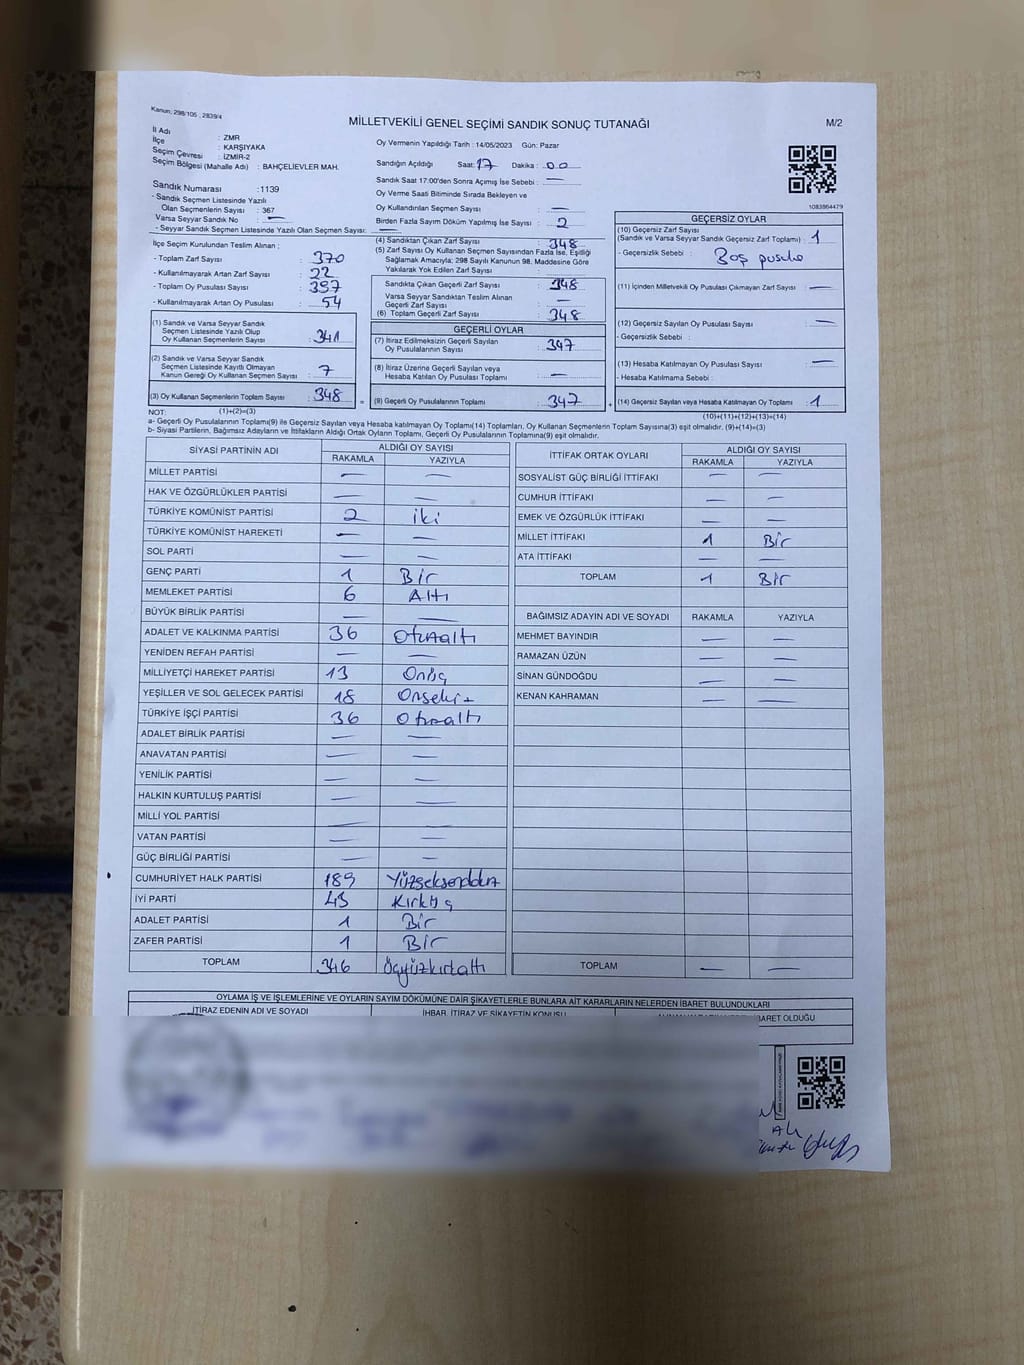 Kanun; 298/105 , 2839/4
MİLLETVEKİLİ GENEL SEÇİMİ SANDIK SONUÇ TUTANAĞI
M/2
İl Adı : ZMR
İlçe : KARŞIYAKA
Seçim Çevresi : İZMİR-2
Seçim Bölgesi (Mahalle Adı) : BAHÇELİEVLER MAH.
Sandık Numarası : 1139
- Sandık Seçmen Listesinde Yazılı
Olan Seçmenlerin Sayısı : 367
Varsa Seyyar Sandık No : —
- Seyyar Sandık Seçmen Listesinde Yazılı Olan Seçmen Sayısı: —
Oy Vermenin Yapıldığı Tarih : 14/05/2023 Gün: Pazar
Sandığın Açıldığı Saat: 17 Dakika : 00
Sandık Saat 17:00'den Sonra Açımış İse Sebebi : —
Oy Verme Saati Bitiminde Sırada Bekleyen ve
Oy Kullandırılan Seçmen Sayısı : —
Birden Fazla Sayım Döküm Yapılmış İse Sayısı : 2
1083964479
İlçe Seçim Kurulundan Teslim Alınan ;
- Toplam Zarf Sayısı : 370
- Kullanılmayarak Artan Zarf Sayısı : 22
- Toplam Oy Pusulası Sayısı : 397
- Kullanılmayarak Artan Oy Pusulası : 54
(1) Sandık ve Varsa Seyyar Sandık
Seçmen Listesinde Yazılı Olup
Oy Kullanan Seçmenlerin Sayısı : 341
(2) Sandık ve Varsa Seyyar Sandık
Seçmen Listesinde Kayıtlı Olmayan
Kanun Gereği Oy Kullanan Seçmen Sayısı : 7
(3) Oy Kullanan Seçmenlerin Toplam Sayısı : 348
(4) Sandıktan Çıkan Zarf Sayısı : 348
(5) Zarf Sayısı Oy Kullanan Seçmen Sayısından Fazla İse, Eşitliği
Sağlamak Amacıyla; 298 Sayılı Kanunun 98. Maddesine Göre
Yakılarak Yok Edilen Zarf Sayısı : —
Sandıkta Çıkan Geçerli Zarf Sayısı : 348
Varsa Seyyar Sandıktan Teslim Alınan
Geçerli Zarf Sayısı : —
(6) Toplam Geçerli Zarf Sayısı : 348
GEÇERLİ OYLAR
(7) İtiraz Edilmeksizin Geçerli Sayılan
Oy Pusulalarının Sayısı : 347
(8) İtiraz Üzerine Geçerli Sayılan veya
Hesaba Katılan Oy Pusulası Toplamı : —
(9) Geçerli Oy Pusulalarının Toplamı : 347
GEÇERSİZ OYLAR
(10) Geçersiz Zarf Sayısı
(Sandık ve Varsa Seyyar Sandık Geçersiz Zarf Toplamı) : 1
- Geçersizlik Sebebi : Boş pusula
(11) İçinden Milletvekili Oy Pusulası Çıkmayan Zarf Sayısı : —
(12) Geçersiz Sayılan Oy Pusulası Sayısı : —
- Geçersizlik Sebebi :
(13) Hesaba Katılmayan Oy Pusulası Sayısı : —
- Hesaba Katılmama Sebebi :
(14) Geçersiz Sayılan veya Hesaba Katılmayan Oy Toplamı : 1
NOT: (1)+(2)=(3) (10)+(11)+(12)+(13)=(14)
a- Geçerli Oy Pusulalarının Toplamı(9) ile Geçersiz Sayılan veya Hesaba katılmayan Oy Toplamı(14) Toplamları, Oy Kullanan Seçmenlerin Toplam Sayısına(3) eşit olmalıdır. (9)+(14)=(3)
b- Siyasi Partilerin, Bağımsız Adayların ve İttifakların Aldığı Ortak Oyların Toplamı, Geçerli Oy Pusulalarının Toplamına(9) eşit olmalıdır.
SİYASİ PARTİNİN ADI ALDIĞI OY SAYISI
RAKAMLA YAZIYLA
MİLLET PARTİSİ — —
HAK VE ÖZGÜRLÜKLER PARTİSİ — —
TÜRKİYE KOMÜNİST PARTİSİ 2 iki
TÜRKİYE KOMÜNİST HAREKETİ — —
SOL PARTİ — —
GENÇ PARTİ 1 Bir
MEMLEKET PARTİSİ 6 Altı
BÜYÜK BİRLİK PARTİSİ — —
ADALET VE KALKINMA PARTİSİ 36 Otuzaltı
YENİDEN REFAH PARTİSİ — —
MİLLİYETÇİ HAREKET PARTİSİ 13 Onüç
YEŞİLLER VE SOL GELECEK PARTİSİ 18 Onsekiz
TÜRKİYE İŞÇİ PARTİSİ 36 Otuzaltı
ADALET BİRLİK PARTİSİ — —
ANAVATAN PARTİSİ — —
YENİLİK PARTİSİ — —
HALKIN KURTULUŞ PARTİSİ — —
MİLLİ YOL PARTİSİ — —
VATAN PARTİSİ — —
GÜÇ BİRLİĞİ PARTİSİ — —
CUMHURİYET HALK PARTİSİ 189 Yüzseksendokuz
İYİ PARTİ 43 Kırküç
ADALET PARTİSİ 1 Bir
ZAFER PARTİSİ 1 Bir
TOPLAM 346 Üçyüzkırkaltı
İTTİFAK ORTAK OYLARI ALDIĞI OY SAYISI
RAKAMLA YAZIYLA
SOSYALİST GÜÇ BİRLİĞİ İTTİFAKI — —
CUMHUR İTTİFAKI — —
EMEK VE ÖZGÜRLÜK İTTİFAKI — —
MİLLET İTTİFAKI 1 Bir
ATA İTTİFAKI — —
TOPLAM 1 Bir
BAĞIMSIZ ADAYIN ADI VE SOYADI RAKAMLA YAZIYLA
MEHMET BAYINDIR — —
RAMAZAN ÜZÜN — —
SİNAN GÜNDOĞDU — —
KENAN KAHRAMAN — —
TOPLAM — —
OYLAMA İŞ VE İŞLEMLERİNE VE OYLARIN SAYIM DÖKÜMÜNE DAİR ŞİKAYETLERLE BUNLARA AİT KARARLARIN NELERDEN İBARET BULUNDUKLARI
İTİRAZ EDENİN ADI VE SOYADI İHBAR, İTİRAZ VE ŞİKAYETİN KONUSU İBARET OLDUĞU